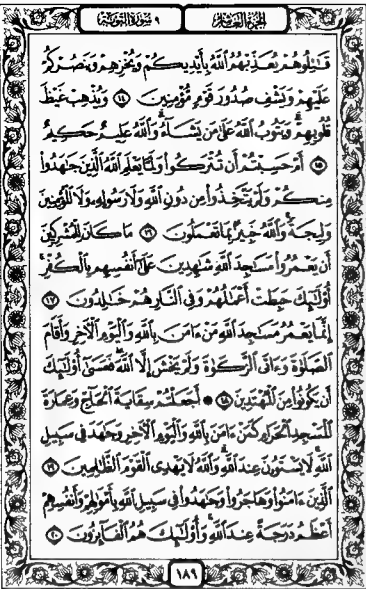 الجزء العاشر
٩ سورة التوبة
قَـٰتِلُوهُمْ يُعَذِّبْهُمُ ٱللَّهُ بِأَيْدِيكُمْ وَيُخْزِهِمْ وَيَنصُرْكُمْ
عَلَيْهِمْ وَيَشْفِ صُدُورَ قَوْمٍ مُّؤْمِنِينَ ١٤ وَيُذْهِبْ غَيْظَ
قُلُوبِهِمْ وَيَتُوبُ ٱللَّهُ عَلَىٰ مَن يَشَآءُ وَٱللَّهُ عَلِيمٌ حَكِيمٌ
١٥ أَمْ حَسِبْتُمْ أَن تُتْرَكُوا۟ وَلَمَّا يَعْلَمِ ٱللَّهُ ٱلَّذِينَ جَـٰهَدُوا۟
مِنكُمْ وَلَمْ يَتَّخِذُوا۟ مِن دُونِ ٱللَّهِ وَلَا رَسُولِهِۦ وَلَا ٱلْمُؤْمِنِينَ
وَلِيجَةً وَٱللَّهُ خَبِيرٌۢ بِمَا تَعْمَلُونَ ١٦ مَا كَانَ لِلْمُشْرِكِينَ
أَن يَعْمُرُوا۟ مَسَـٰجِدَ ٱللَّهِ شَـٰهِدِينَ عَلَىٰٓ أَنفُسِهِم بِٱلْكُفْرِ
أُو۟لَـٰٓئِكَ حَبِطَتْ أَعْمَـٰلُهُمْ وَفِى ٱلنَّارِ هُمْ خَـٰلِدُونَ ١٧
إِنَّمَا يَعْمُرُ مَسَـٰجِدَ ٱللَّهِ مَنْ ءَامَنَ بِٱللَّهِ وَٱلْيَوْمِ ٱلْـَٔاخِرِ وَأَقَامَ
ٱلصَّلَوٰةَ وَءَاتَى ٱلزَّكَوٰةَ وَلَمْ يَخْشَ إِلَّا ٱللَّهَ فَعَسَىٰٓ أُو۟لَـٰٓئِكَ
أَن يَكُونُوا۟ مِنَ ٱلْمُهْتَدِينَ ١٨ ۞ أَجَعَلْتُمْ سِقَايَةَ ٱلْحَآجِّ وَعِمَارَةَ
ٱلْمَسْجِدِ ٱلْحَرَامِ كَمَنْ ءَامَنَ بِٱللَّهِ وَٱلْيَوْمِ ٱلْـَٔاخِرِ وَجَـٰهَدَ فِى سَبِيلِ
ٱللَّهِ لَا يَسْتَوُۥنَ عِندَ ٱللَّهِ وَٱللَّهُ لَا يَهْدِى ٱلْقَوْمَ ٱلظَّـٰلِمِينَ ١٩
ٱلَّذِينَ ءَامَنُوا۟ وَهَاجَرُوا۟ وَجَـٰهَدُوا۟ فِى سَبِيلِ ٱللَّهِ بِأَمْوَٰلِهِمْ وَأَنفُسِهِمْ
أَعْظَمُ دَرَجَةً عِندَ ٱللَّهِ وَأُو۟لَـٰٓئِكَ هُمُ ٱلْفَآئِزُونَ ٢٠
١٨٩